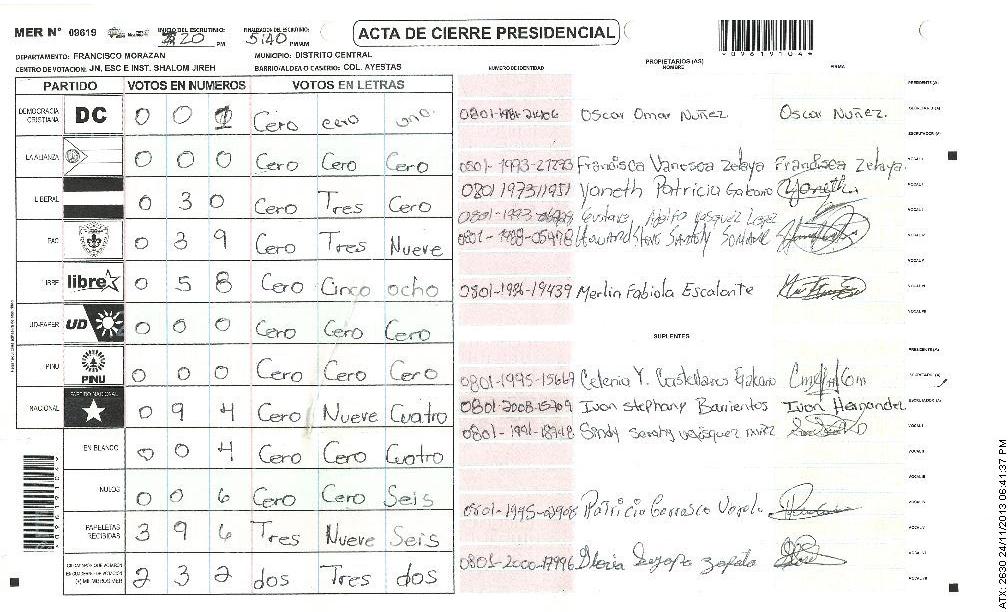 MER N° 09619 INICIO DEL ESCRUTINIO: 20 PM FINALIZACION DEL ESCRUTINIO: 5:40 PM/AM ACTA DE CIERRE PRESIDENCIAL
DEPARTAMENTO: FRANCISCO MORAZAN MUNICIPIO: DISTRITO CENTRAL
CENTRO DE VOTACION: JN, ESC E INST. SHALOM JIREH BARRIO/ALDEA O CASERIO: COL. AYESTAS
NUMERO DE IDENTIDAD PROPIETARIOS (AS) NOMBRE FIRMA
PARTIDO VOTOS EN NUMEROS VOTOS EN LETRAS
DEMOCRACIA CRISTIANA DC 0 0 1 Cero cero uno.
LA ALIANZA 0 0 0 Cero Cero Cero
LIBERAL 0 3 0 Cero Tres Cero
PAC 0 3 9 Cero Tres Nueve
LIBRE libre 0 5 8 Cero Cinco ocho
UD-FAPER UD 0 0 0 Cero Cero Cero
PINU PINU 0 0 0 Cero Cero Cero
NACIONAL PARTIDO NACIONAL 0 9 4 Cero Nueve Cuatro
EN BLANCO 0 0 4 Cero Cero Cuatro
NULOS 0 0 6 Cero Cero Seis
PAPELETAS RECIBIDAS 3 9 6 Tres Nueve Seis
CIUDADANOS QUE VOTARON EN CUADERNO DE VOTACION (+) MIEMBROS MER 2 3 2 dos Tres dos
PRESIDENTE (A)
SECRETARIO (A)
Oscar Omar Nuñez Oscar Nuñez.
ESCRUTADOR (A)
Francisca Vanessa Zelaya Francisca Zelaya.
VOCAL I
0801 1973 11951 Yaneth Patricia Yaneth
Gustavo Adolfo Vasquez
0801-1988-05978
0801-1986-19439 Merlin Fabiola Escalante
SUPLENTES
PRESIDENTE (A)
SECRETARIO (A)
0801-1995-15669 Celenia Y. Castellanos
0801-2008-15209 Ivon Stephany Barrientos Ivon Hernandez
ESCRUTADOR (A)
0801-1991-18948 Sindy
Patricia Carrasco
0801-2000-17996 Gloria
ATX: 2630 24/11/2013 06:41:37 PM